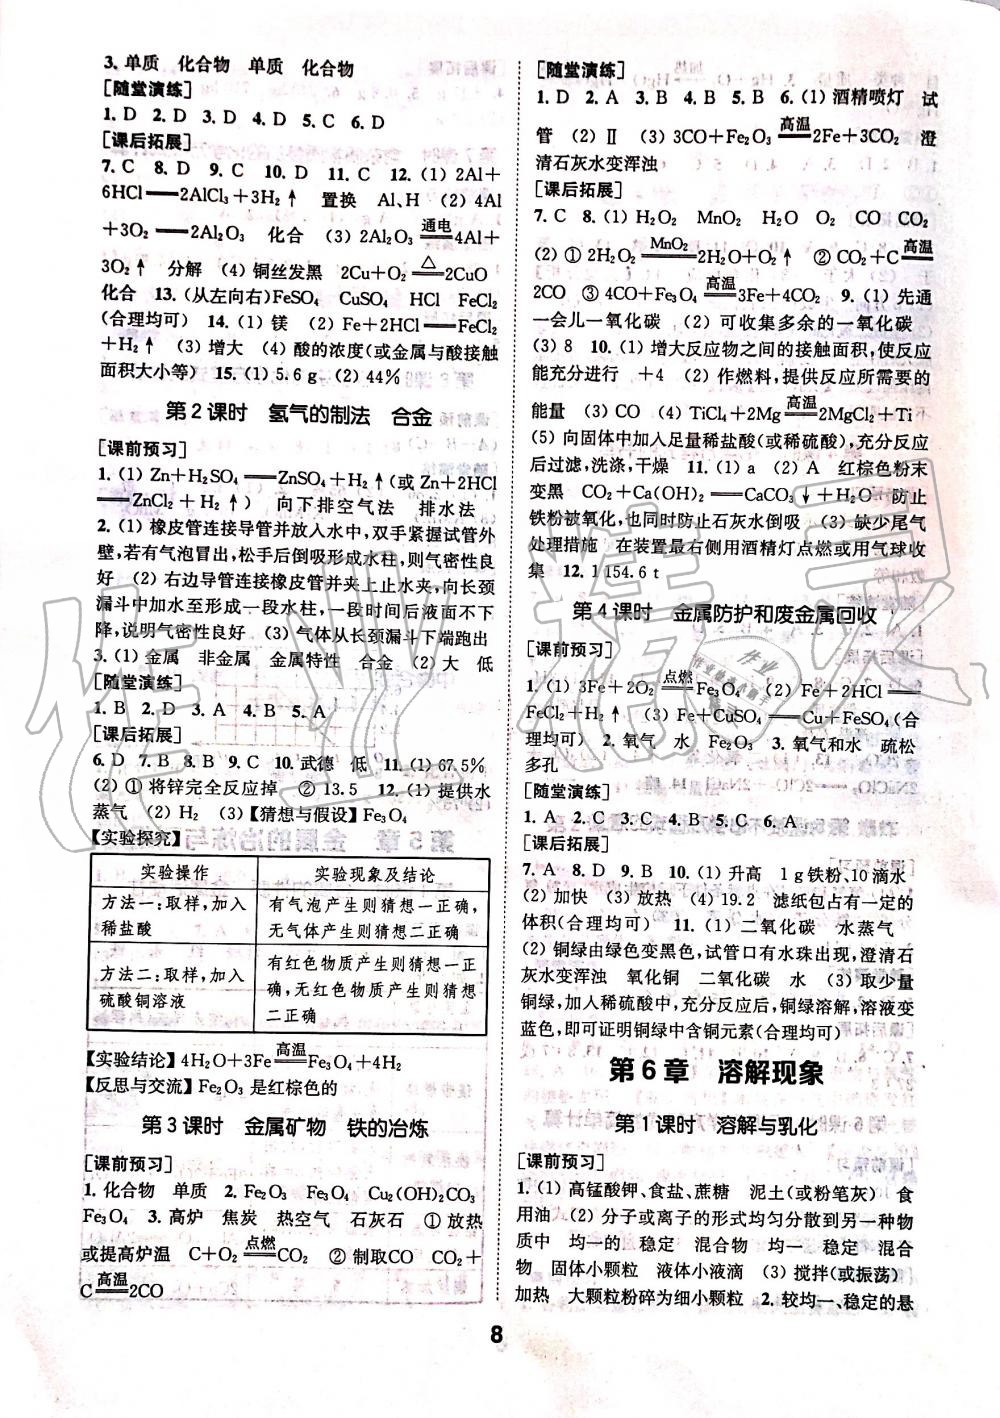 3. 单质 化合物 单质 化合物
[随堂演练]
1. D 2. D 3. D 4. D 5. C 6. D
[课后拓展]
7. C 8. D 9. C 10. D 11. C 12. (1) 2Al＋
6HCl══2AlCl₃＋3H₂↑ 置换 Al、H (2) 4Al
＋3O₂══2Al₂O₃ 化合 (3) 2Al₂O₃ 通电══ 4Al＋
3O₂↑ 分解 (4) 铜丝发黑 2Cu＋O₂ △══ 2CuO
化合 13. (从左向右)FeSO₄ CuSO₄ HCl FeCl₂
(合理均可) 14. (1) 镁 (2) Fe＋2HCl══FeCl₂
＋H₂↑ (3) 增大 (4) 酸的浓度(或金属与酸接触
面积大小等) 15. (1) 5.6 g (2) 44%
第2课时 氢气的制法 合金
[课前预习]
1. (1) Zn＋H₂SO₄══ZnSO₄＋H₂↑(或 Zn＋2HCl
══ZnCl₂＋H₂↑) 向下排空气法 排水法
2. (1) 橡皮管连接导管并放入水中,双手紧握试管外
壁,若有气泡冒出,松手后倒吸形成水柱,则气密性良
好 (2) 右边导管连接橡皮管并夹上止水夹,向长颈
漏斗中加水至形成一段水柱,一段时间后液面不下
降,说明气密性良好 (3) 气体从长颈漏斗下端跑出
3. (1) 金属 非金属 金属特性 合金 (2) 大 低
[随堂演练]
1. B 2. D 3. A 4. B 5. A
[课后拓展]
6. D 7. B 8. B 9. C 10. 武德 低 11. (1) 67.5%
(2) ① 将锌完全反应掉 ② 13.5 12. (1) 提供水
蒸气 (2) H₂ (3)【猜想与假设】Fe₃O₄
【实验探究】
实验操作 实验现象及结论
方法一:取样,加入 有气泡产生则猜想一正确,
稀盐酸 无气体产生则猜想二正确
方法二:取样,加入 有红色物质产生则猜想一正
硫酸铜溶液 确,无红色物质产生则猜想
二正确
【实验结论】4H₂O＋3Fe 高温══ Fe₃O₄＋4H₂
【反思与交流】Fe₂O₃是红棕色的
第3课时 金属矿物 铁的冶炼
[课前预习]
1. 化合物 单质 2. Fe₂O₃ Fe₃O₄ Cu₂(OH)₂CO₃
Fe₃O₄ 3. 高炉 焦炭 热空气 石灰石 ① 放热
或提高炉温 C＋O₂ 点燃══ CO₂ ② 制取CO CO₂＋
C 高温══ 2CO
[随堂演练]
1. D 2. A 3. B 4. B 5. B 6. (1) 酒精喷灯 试
管 (2) Ⅱ (3) 3CO＋Fe₂O₃ 高温══ 2Fe＋3CO₂ 澄
清石灰水变浑浊
[课后拓展]
7. C 8. (1) H₂O₂ MnO₂ H₂O O₂ CO CO₂
(2) ① 2H₂O₂ MnO₂══ 2H₂O＋O₂↑ ② CO₂＋C 高温══
2CO ③ 4CO＋Fe₃O₄ 高温══ 3Fe＋4CO₂ 9. (1) 先通
一会儿一氧化碳 (2) 可收集多余的一氧化碳
(3) 8 10. (1) 增大反应物之间的接触面积,使反应
能充分进行 ＋4 (2) 作燃料,提供反应所需要的
能量 (3) CO (4) TiCl₄＋2Mg 高温══ 2MgCl₂＋Ti
(5) 向固体中加入足量稀盐酸(或稀硫酸),充分反应
后过滤,洗涤,干燥 11. (1) a (2) A 红棕色粉末
变黑 CO₂＋Ca(OH)₂══CaCO₃↓＋H₂O 防止
铁粉被氧化,也同时防止石灰水倒吸 (3) 缺少尾气
处理措施 在装置最右侧用酒精灯点燃或用气球收
集 12. 1 154.6 t
第4课时 金属防护和废金属回收
[课前预习]
1. (1) 3Fe＋2O₂ 点燃══ Fe₃O₄ (2) Fe＋2HCl══
FeCl₂＋H₂↑ (3) Fe＋CuSO₄══Cu＋FeSO₄(合
理均可) 2. 氧气 水 Fe₂O₃ 3. 氧气和水 疏松
多孔
[随堂演练]
1. A 2. C 3. C 4. C 5. C 6. A
[课后拓展]
7. A 8. D 9. B 10. (1) 升高 1 g铁粉、10滴水
(2) 加快 (3) 放热 (4) 19.2 滤纸包占有一定的
体积(合理均可) 11. (1) 二氧化碳 水蒸气
(2) 铜绿由绿色变黑色,试管口有水珠出现,澄清石
灰水变浑浊 氧化铜 二氧化碳 水 (3) 取少量
铜绿,加入稀硫酸中,充分反应后,铜绿溶解,溶液变
蓝色,即可证明铜绿中含铜元素(合理均可)
第6章 溶解现象
第1课时 溶解与乳化
[课前预习]
1. (1) 高锰酸钾、食盐、蔗糖 泥土(或粉笔灰) 食
用油 (2) 分子或离子的形式均匀分散到另一种物
质中 均一的 稳定 混合物 均一 稳定 混合
物 固体小颗粒 液体小液滴 (3) 搅拌(或振荡)
加热 大颗粒粉碎为细小颗粒 2. 较均一、稳定的悬
8
作业精灵